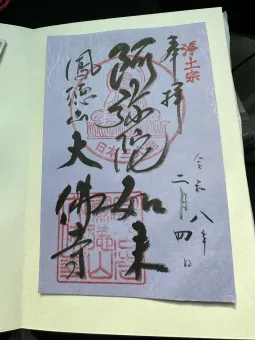 浄土宗
奉拝
阿弥陀如来
鳳徳山大佛寺
令和八年
二月四日